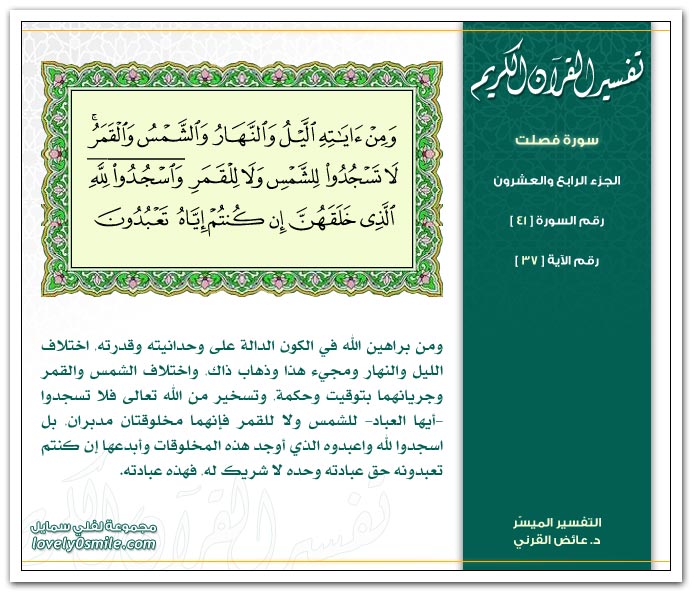 تفسير القرآن الكريم
سورة فصلت
الجزء الرابع والعشرون
رقم السورة [ ٤١ ]
رقم الآية [ ٣٧ ]
وَمِنْ ءَايَٰتِهِ ٱلَّيْلُ وَٱلنَّهَارُ وَٱلشَّمْسُ وَٱلْقَمَرُ ۚ
لَا تَسْجُدُوا۟ لِلشَّمْسِ وَلَا لِلْقَمَرِ وَٱسْجُدُوا۟ لِلَّهِ
ٱلَّذِى خَلَقَهُنَّ إِن كُنتُمْ إِيَّاهُ تَعْبُدُونَ
ومن براهين الله في الكون الدالة على وحدانيته وقدرته، اختلاف
الليل والنهار ومجيء هذا وذهاب ذاك، واختلاف الشمس والقمر
وجريانهما بتوقيت وحكمة، وتسخير من الله تعالى فلا تسجدوا
-أيها العباد- للشمس ولا للقمر فإنهما مخلوقتان مدبران، بل
اسجدوا لله واعبدوه الذي أوجد هذه المخلوقات وأبدعها إن كنتم
تعبدونه حق عبادته وحده لا شريك له، فهذه عبادته.
تفسير القرآن الكريم
مجموعة لفلي سمايل
lovely0smile.com
التفسير الميسّر
د. عائض القرني